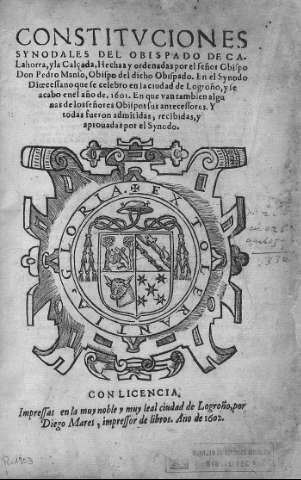 CONSTITVCIONES
SYNODALES DEL OBISPADO DE CA-
Lahorra, y la Calçada, Hechas y ordenadas por el señor Obispo
Don Pedro Manso, Obispo del dicho Obispado. En el Synodo
Diocessano que se celebro en la ciudad de Logroño, y se
acabo en el año de, 1601. En que van tambien algu
nas de los señores Obispos sus antecessores. Y
todas fueron admitidas, recibidas, y
aprouadas por el Synodo.
GLORIA EX TOLERANTIA
CON LICENCIA,
Impressas en la muy noble y muy leal ciudad de Logroño, por
Diego Mares, impressor de libros. Año de 1602.